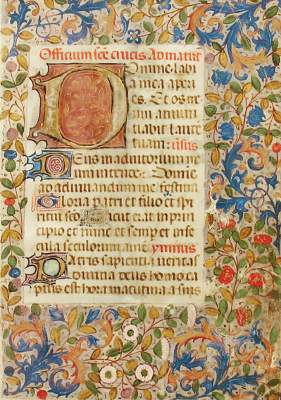 Officium sce crucis. Ad matut
Domine labi
a mea aperi
es. Et os me
um annunti
abit lauce
tuam: versus
Deus in adiutorium m
eum intence. Domine
ad iuuandum me festina
Gloria patri et filio et spi
ritui sco. Sicut erat in prin
cipio et nunc et semp et in se
cula seculorum amē ymnus
Patris sapientia ueritas
diuina deus homo ca
ptus est hora matutina a suis